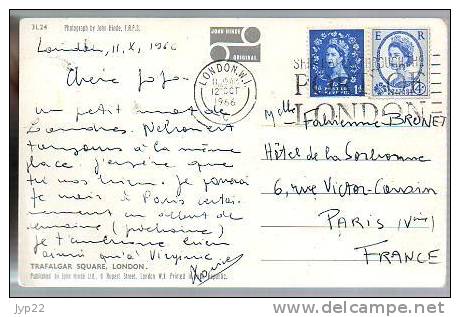 3L24 Photograph by John Hinde, F.R.P.S.
JOHN HINDE
ORIGINAL
London, 11.X.1966
Chère
un petit mot de
Londres. Nelson est
toujours à la même
place. J'espère que
tu vas bien. Je
à Paris
ment en début de
semaine (prochaine)
je t'embrasse bien
ainsi qu'à Virginie
TRAFALGAR SQUARE, LONDON.
Published by John Hinde Ltd., 6 Rupert Street, London W.1 Printed in Republic.
LONDON.W.1.
12 OCT
1966
C
LONDON
E R
1D
Melle Fabienne BRUNET
Hôtel de la Sorbonne
6, rue Victor-Cousin
PARIS (Vème)
FRANCE
jpp22
delcampe.net